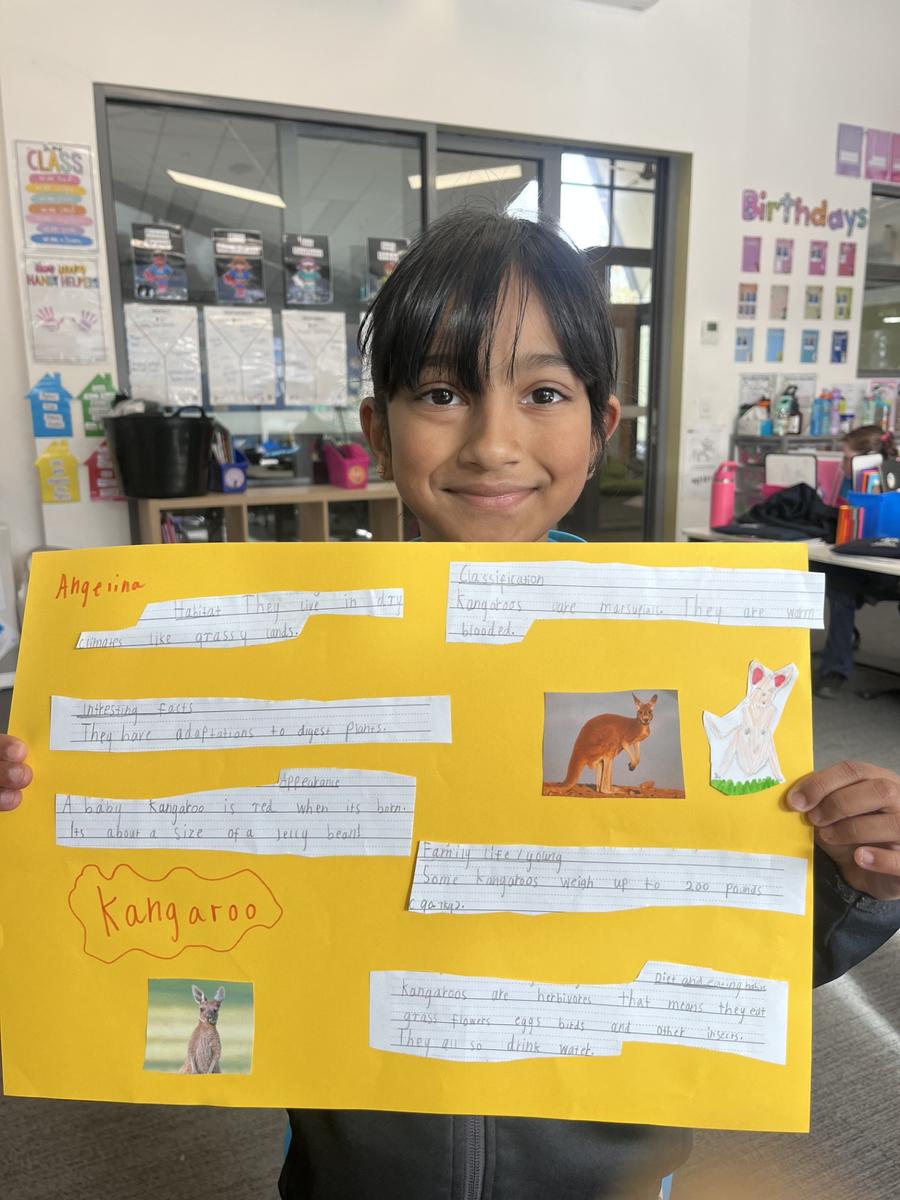 CLASS
HANDY HELPERS
Birthdays
Angelina
Habitat They live in dry
climates like grassy lands.
Classification
Kangaroos are marsupials. They are warm
blooded.
Intresting facts
They have adaptations to digest plants.
Appearance
A baby Kangaroo is red when its born.
Its about a size of a Jelly bean!
Kangaroo
Family life/young
Some kangaroos weigh up to 200 pounds
Diet and eating habits
Kangaroos are herbivores that means they eat
grass flowers eggs birds and other insects.
They all so drink water.